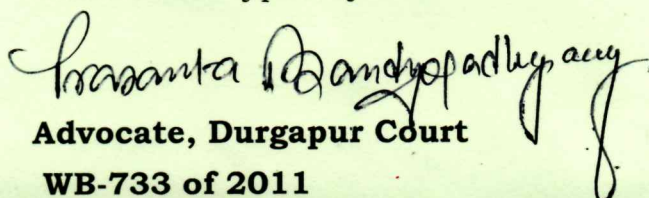 Prasanta Bandyopadhyay
Advocate, Durgapur Court
WB-733 of 2011